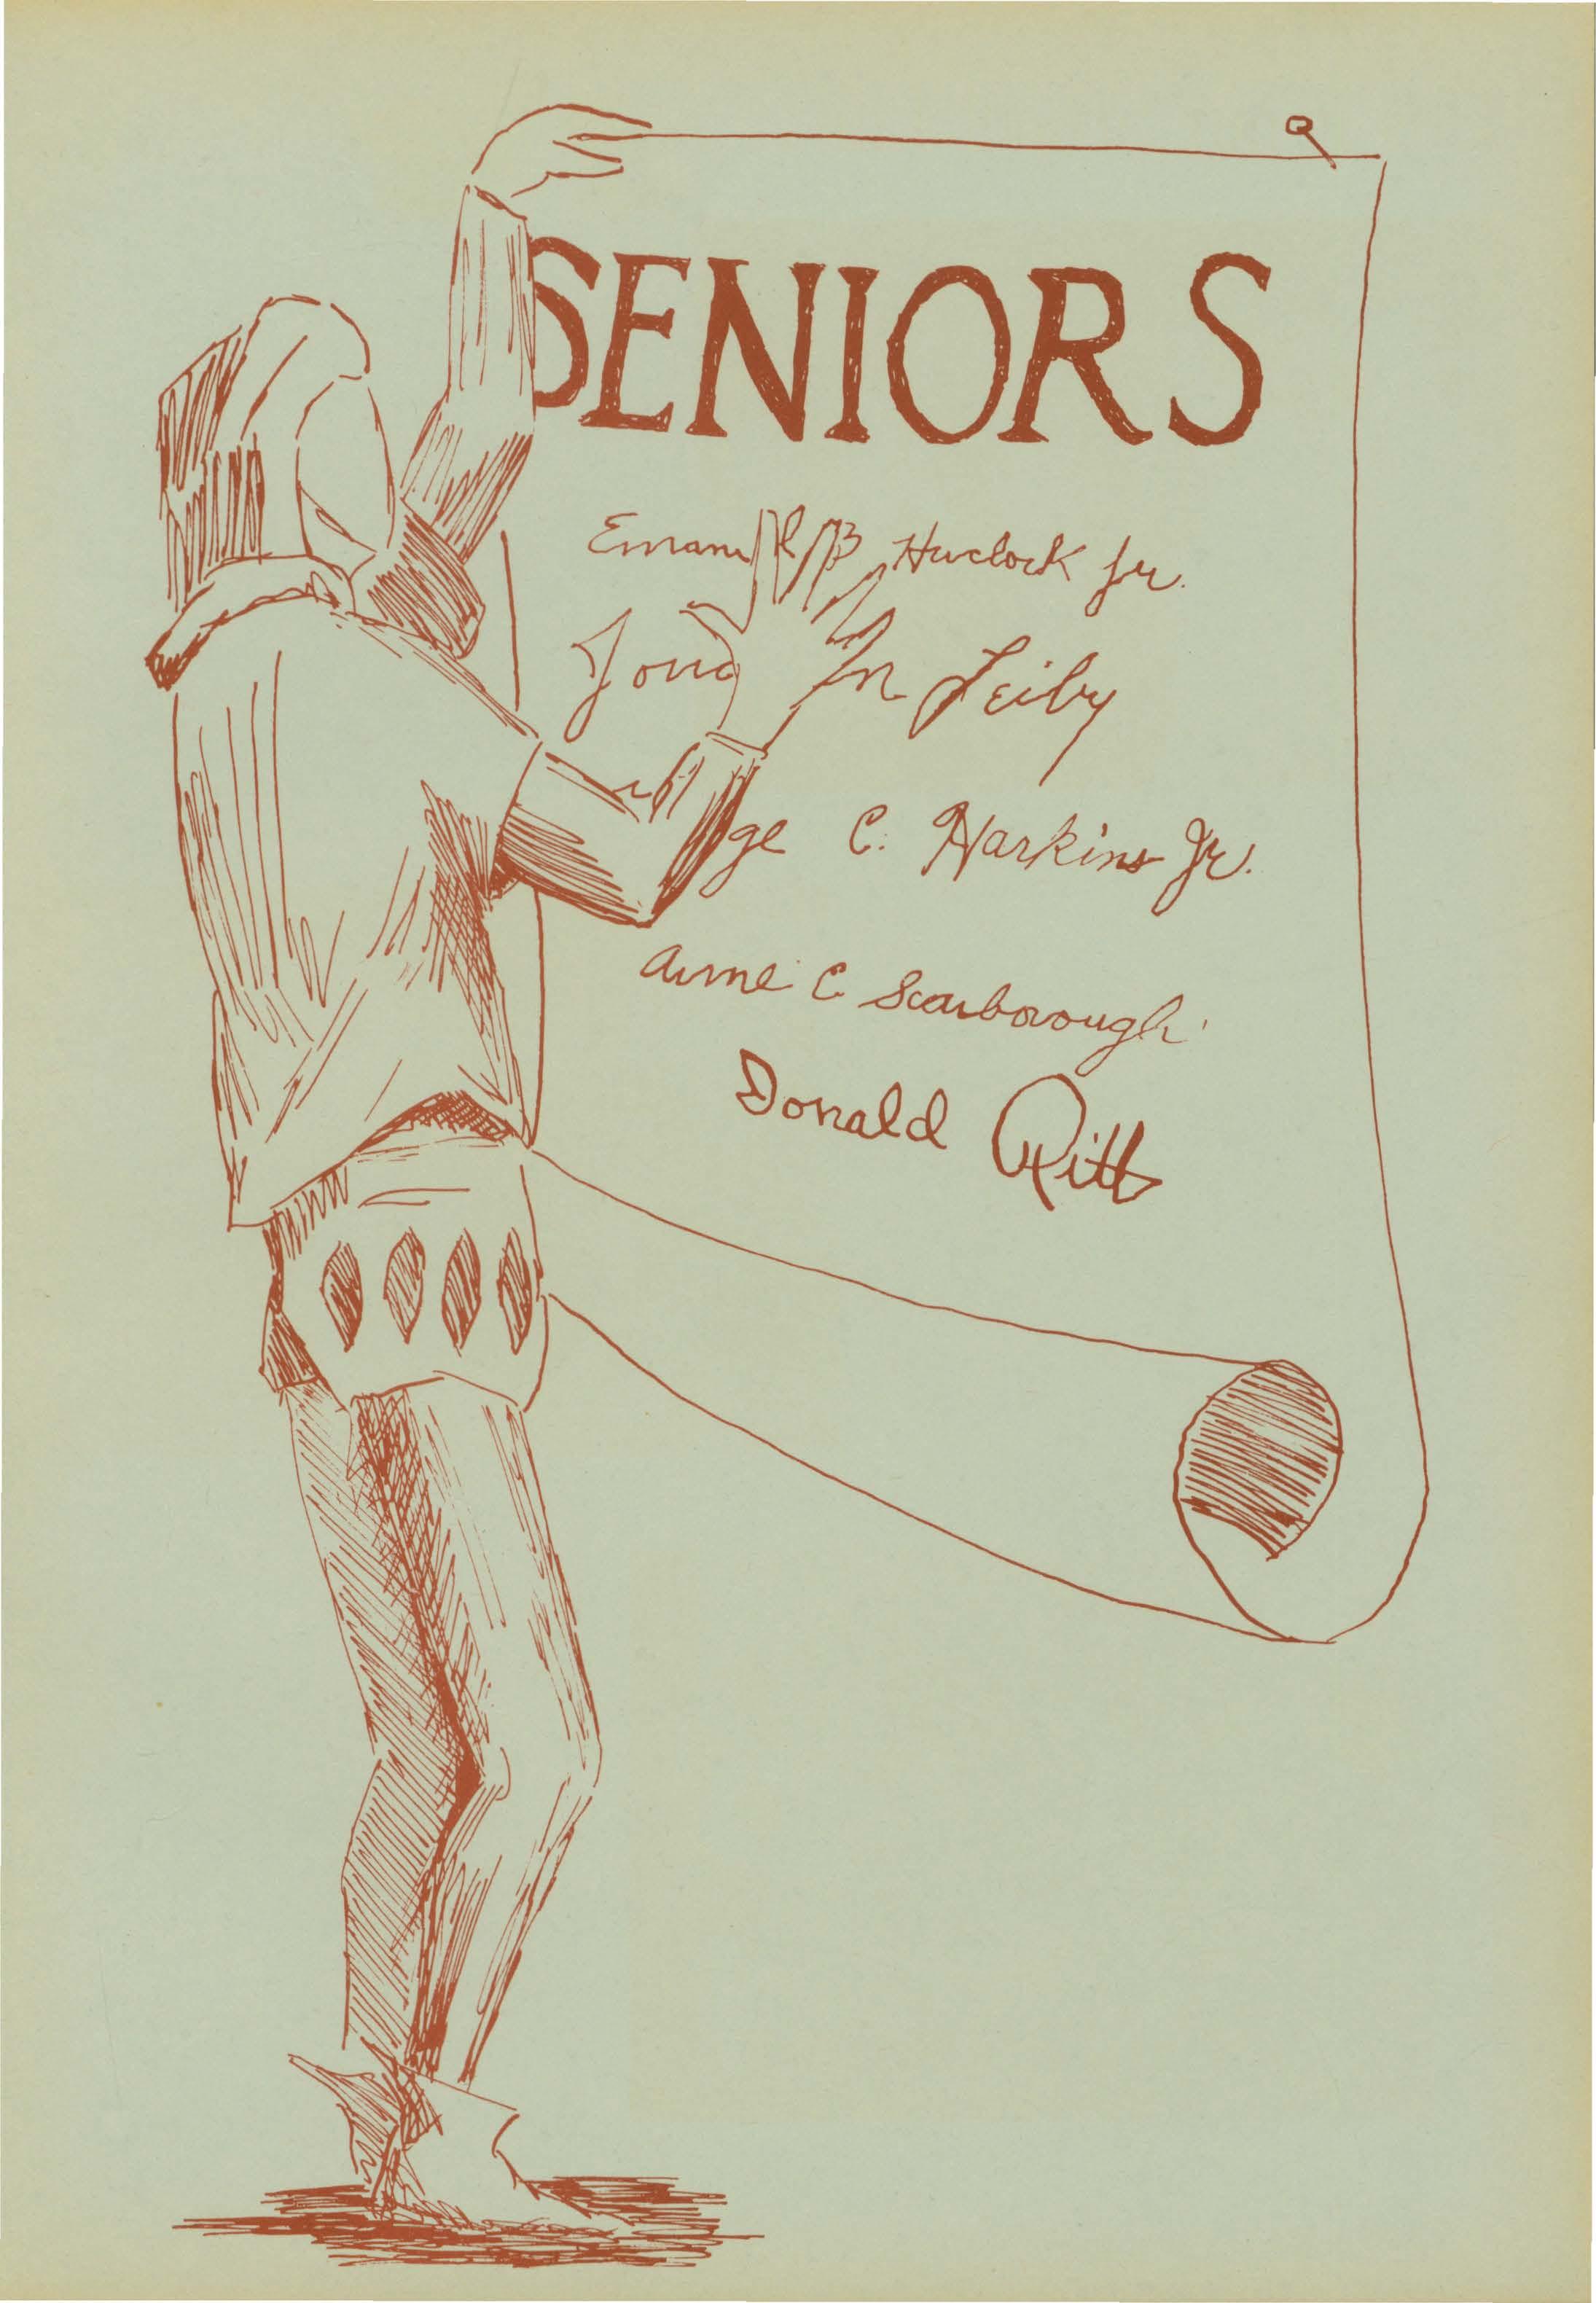 SENIORS
Hurlock Jr.
n Leiby
ge C. Harkins Jr.
Anne C Scarborough
Donald Pitt